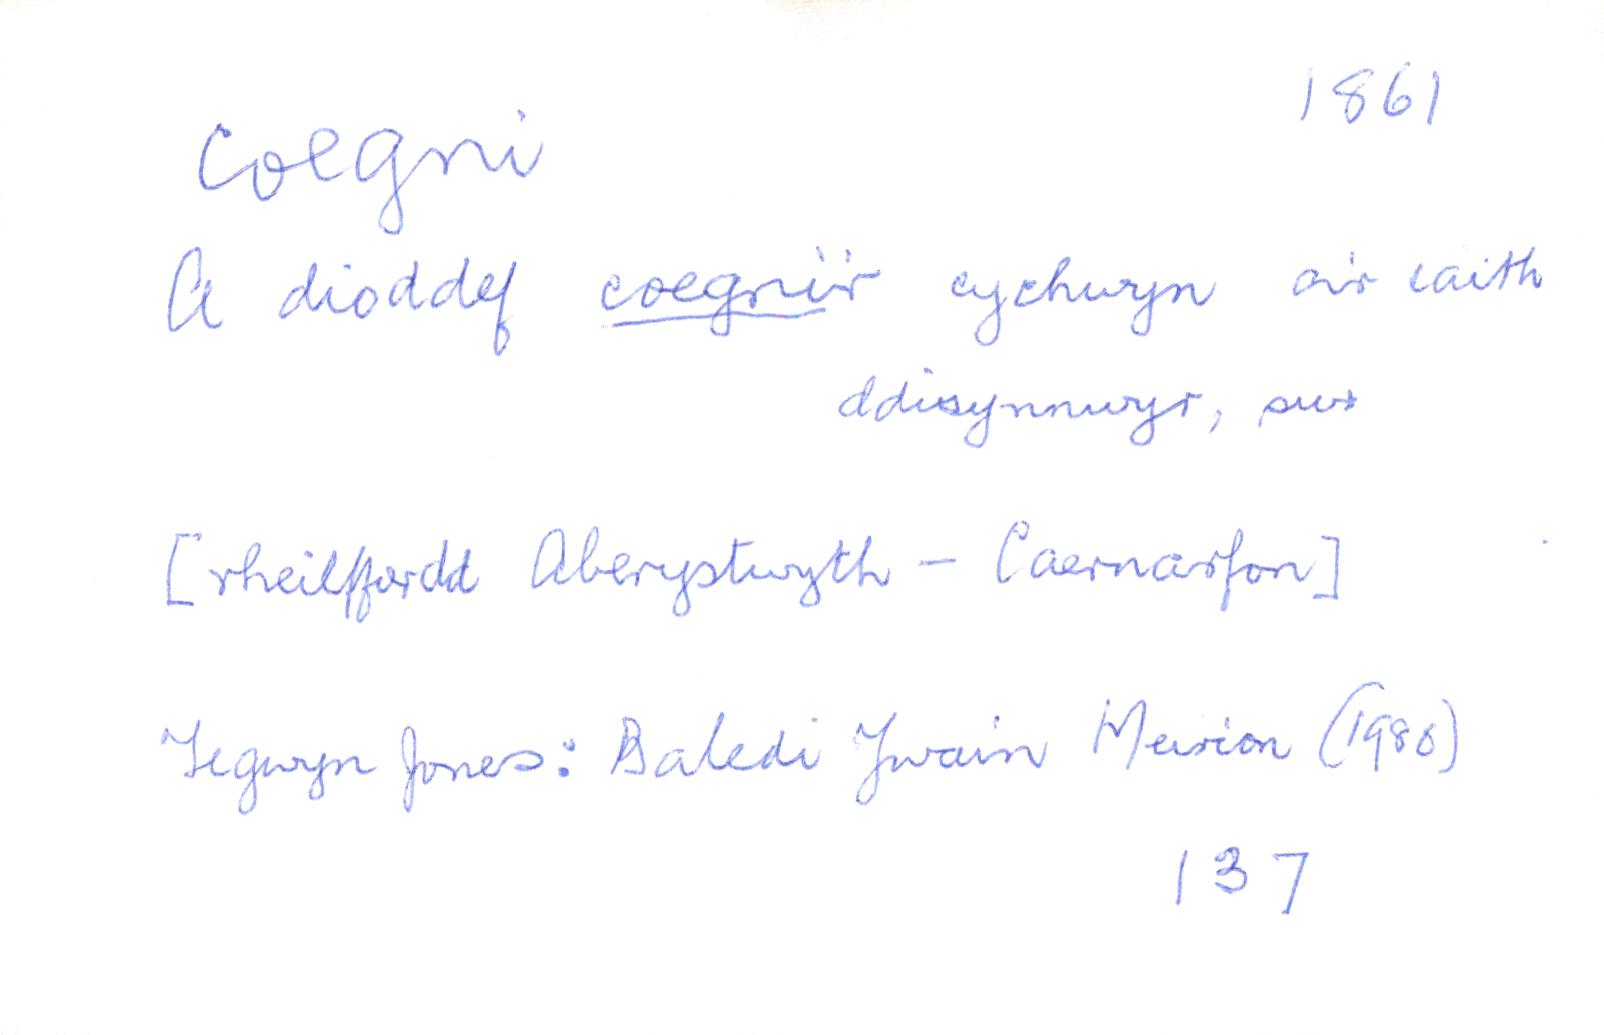 1861
coegni
A dioddef coegni'r cychwyn a'r taith
ddisynnwyr, swr
[rheilffordd Aberystwyth – Caernarfon]
Tegwyn Jones: Baledi Ywain Meirion (1980)
137